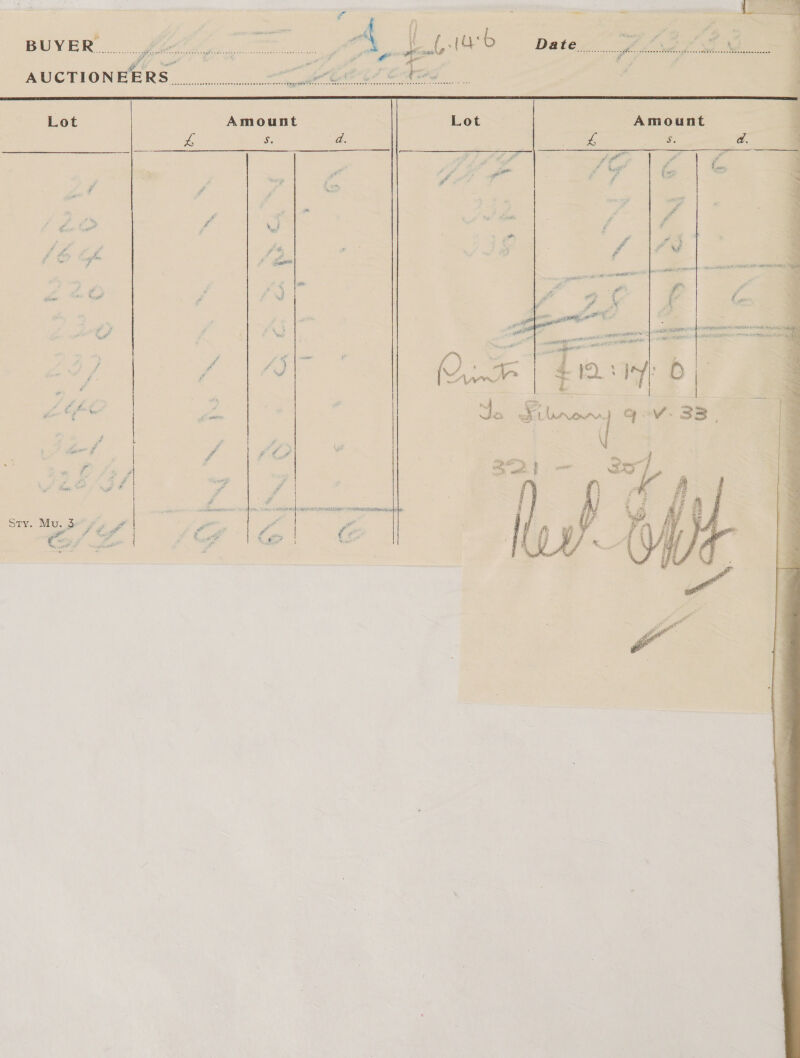 BUYER £6.14.6 Date 7/3/33
AUCTIONEERS
Lot Amount
£ s. d.
21 1 7 6
120 1 5 -
164 12 -
220 1 15 -
230 1 15 -
237 1 15 -
240 2 - -
321 1 10 -
328/31 7 7
Sty. Mu. 3
19 6 6
Lot Amount
£ s. d.
19 6 6
332 7 7 -
338 1 15 -
£28 8 6
Prints £12:17:0
To Library 9.V.33.
321 - 30/-